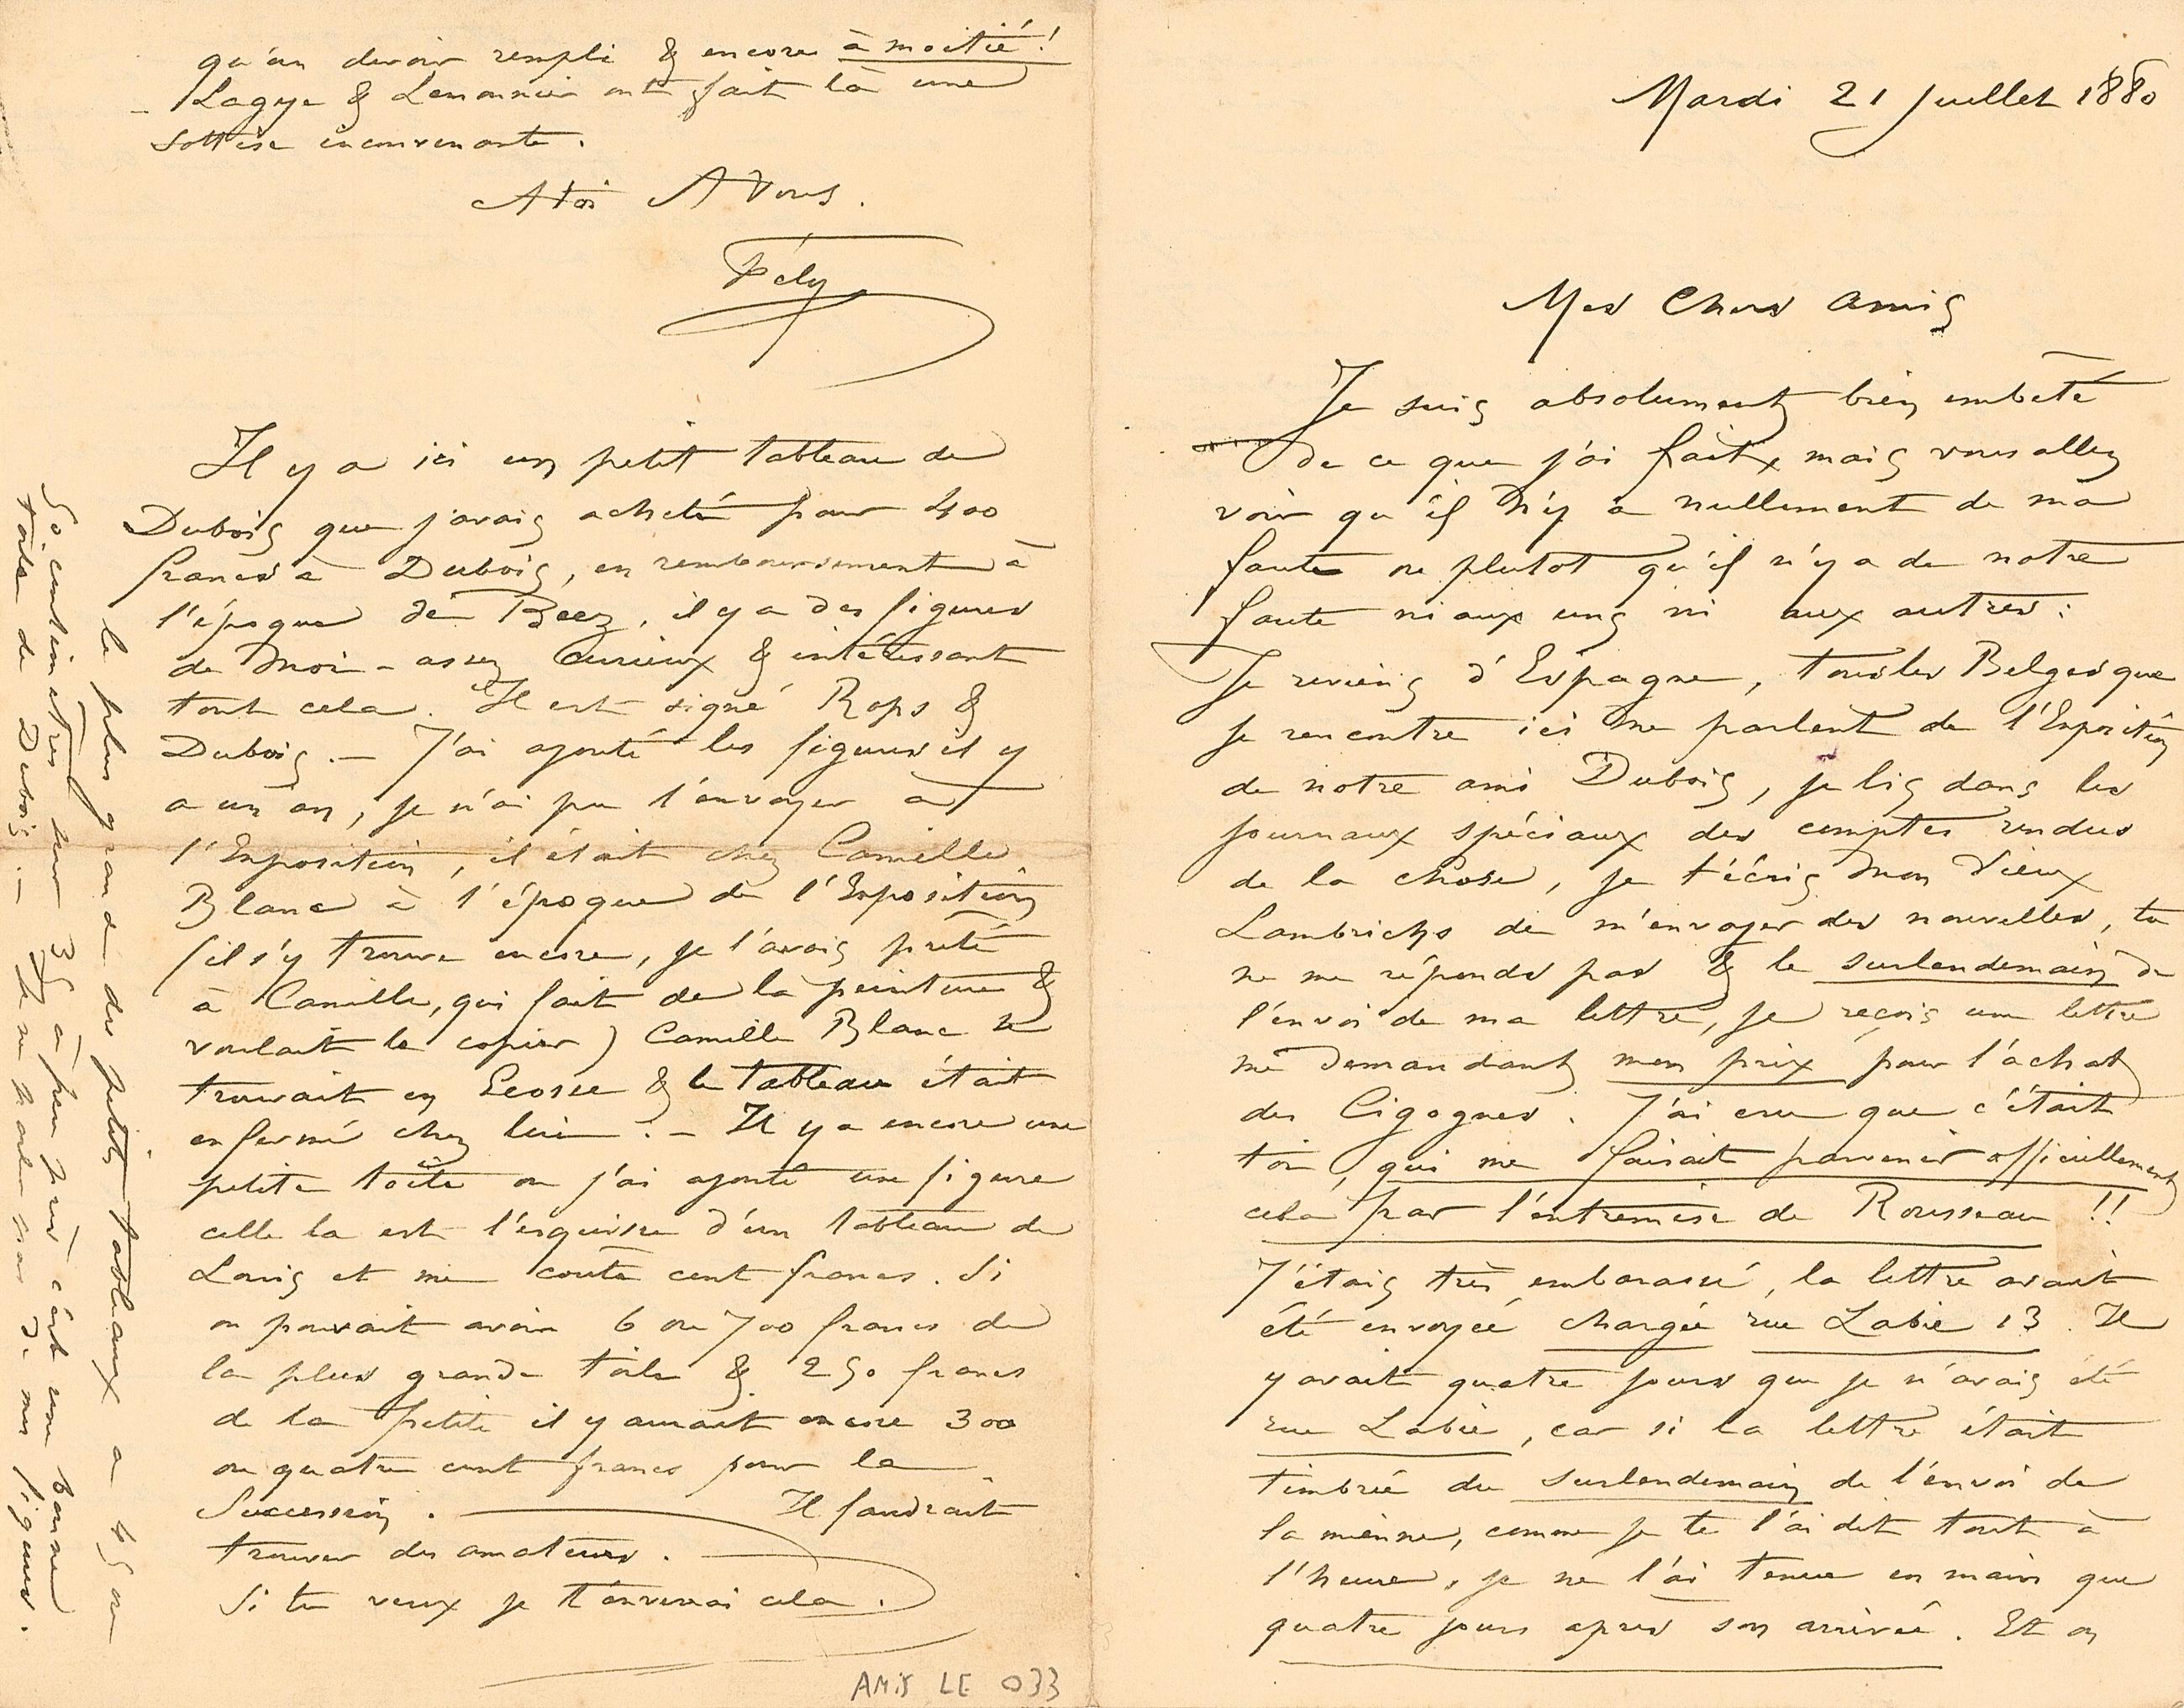 Mardi 21 Juillet 1880
Mes Chers Amis
Je suis absolument bien embêté
de ce que j'ai fait, mais vous allez
voir qu'il n'y a nullement de ma
faute ou plutot qu'il n'y a de notre
faute ni aux uns ni aux autres :
Je reviens d'Espagne, tous les Belges que
je rencontre ici me parlent de l'Exposition
de notre ami Dubois, je lis dans les
journaux spéciaux des comptes rendus
de la chose, je t'écris mon vieux
Lambrichs de m'envoyer des nouvelles, tu
ne me réponds pas & le surlendemain de
l'envoi de ma lettre, je reçois une lettre
me demandant mon prix pour l'achat
des Cigognes. J'ai cru que c'était
toi, qui me faisait parvenir officiellement
cela par l'entremise de Rousseau !!
J'étais très embarassé, la lettre avait
été envoyée chargée rue Labie 13. Il
y avait quatre jours que je n'avais été
rue Labie, car si la lettre était
timbrée du surlendemain de l'envoi de
la mienne, comme je te l'ai dit tout à
l'heure, je ne l'ai tenue en main que
quatre jours après son arrivée. Et on
qu'un devoir rempli & encore à moitié !
– Lagye & Lemonnier ont fait là une
sottise inconvenante.
A toi A Vous.
Fély
Il y a ici un petit tableau de
Dubois que j'avais acheté pour 400
francs à Dubois, en remboursement à
l'époque de Beez, il y a des figures
de moi – assez curieux & intéressant
tout cela. Il est signé Rops &
Dubois. – J'ai ajouté les figures il y
a un an, je n'ai pu l'envoyer à
l'Exposition, il était chez Camille
Blanc à l'époque de l'Exposition
(il s'y trouve encore, je l'avais prêté
à Camille, qui fait de la peinture &
voulait le copier) Camille Blanc se
trouvait en Ecosse & le tableau était
enfermé chez lui. – Il y a encore une
petite toile ou j'ai ajouté une figure
celle la est l'esquisse d'un tableau de
Louis et me coute cent francs. Si
on pouvait avoir 6 ou 700 francs de
la plus grande toile & 250 francs
de la petite il y aurait encore 300
ou quatre cent francs pour la
Succession. — Il faudrait
trouver des amateurs. —
Si tu veux je t'enverrai cela.
le plus grand des petits tableaux a 45 ou
50 centimètres sur 35 à peu près c'est une bonne
toile de Dubois. – Je ne parle pas de mes figures.
AMIS LE 033